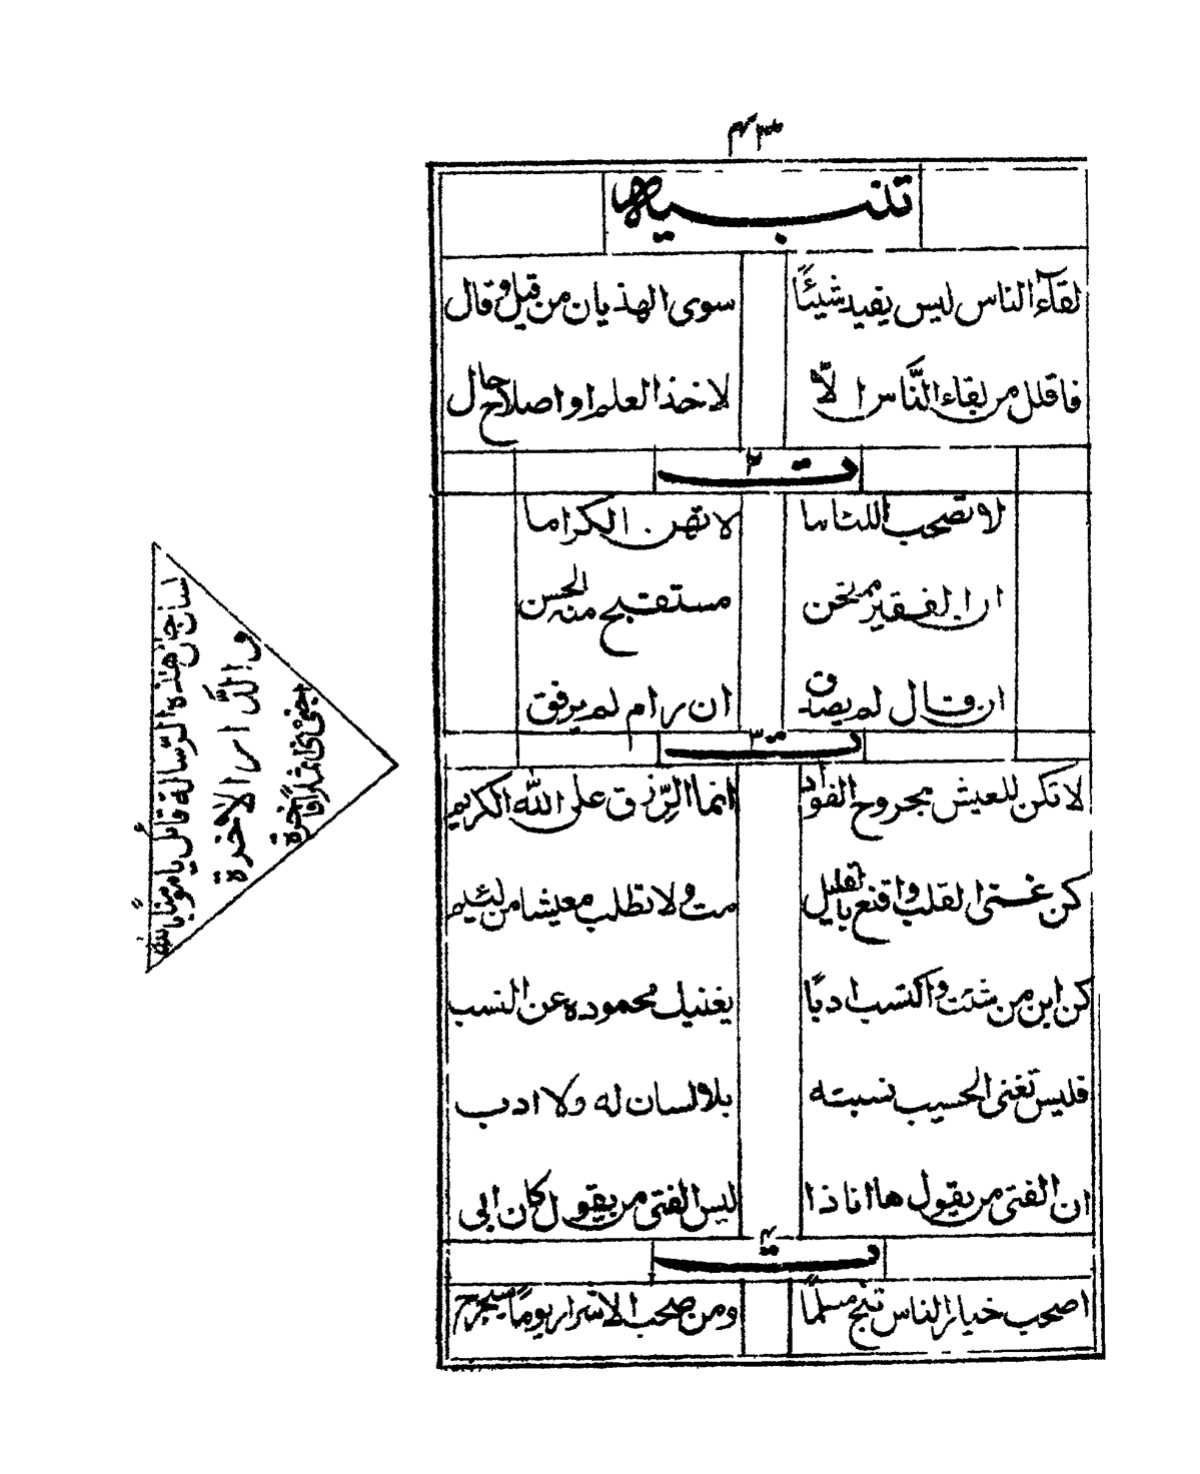 ٤٣
تنبيه
لقآء الناس ليس يفيد شيئًا سوى الهذيان من قيل وقال
فاقلل من لقاء النَّاس الّا لاخذ العلم او اصلاح حال
ت ٢
لا تصحب اللئاما لا تهن الكراما
ان الفقير ممتحن مستقبح منه الحسن
ان قال لم يصدق ان رام لم يرفق
ت ٣
لا تكن للعيش مجروح الفواد انما الرّزق على الله الكريم
كن غنى القلب واقنع بالقليل مت ولا تطلب معيشا من لئيم
كن ابن من شئت واكتسب ادبًا يغنيك محموده عن النسب
فليس تغنى الحسيب نسبته بلا لسان له ولا ادب
ان الفتى من يقول ها انا ذا ليس الفتى من يقول كان ابى
ت ٤
اصحب خيار الناس تنج مسلمًا ومن صحب الاشرار يومًا سيجرح
لسان حال هذه الرّسالة قائل يا مؤمنا بالله
و الدَّار الاخرة